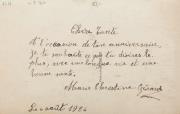 Chère Tante
A l'occasion de ton anniversaire,
je te souhaite ce que tu désires le
plus, avec une longue vie et une
bonne santé.
Marie Christine Gérard
Le août 1964